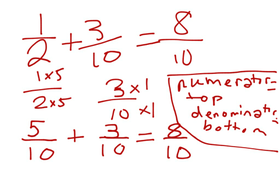 1/2 + 3/10 = 8/10
1×5/2×5 3×1/10×1
5/10 + 3/10 = 8/10
numerator-
top
denominator-
bottom